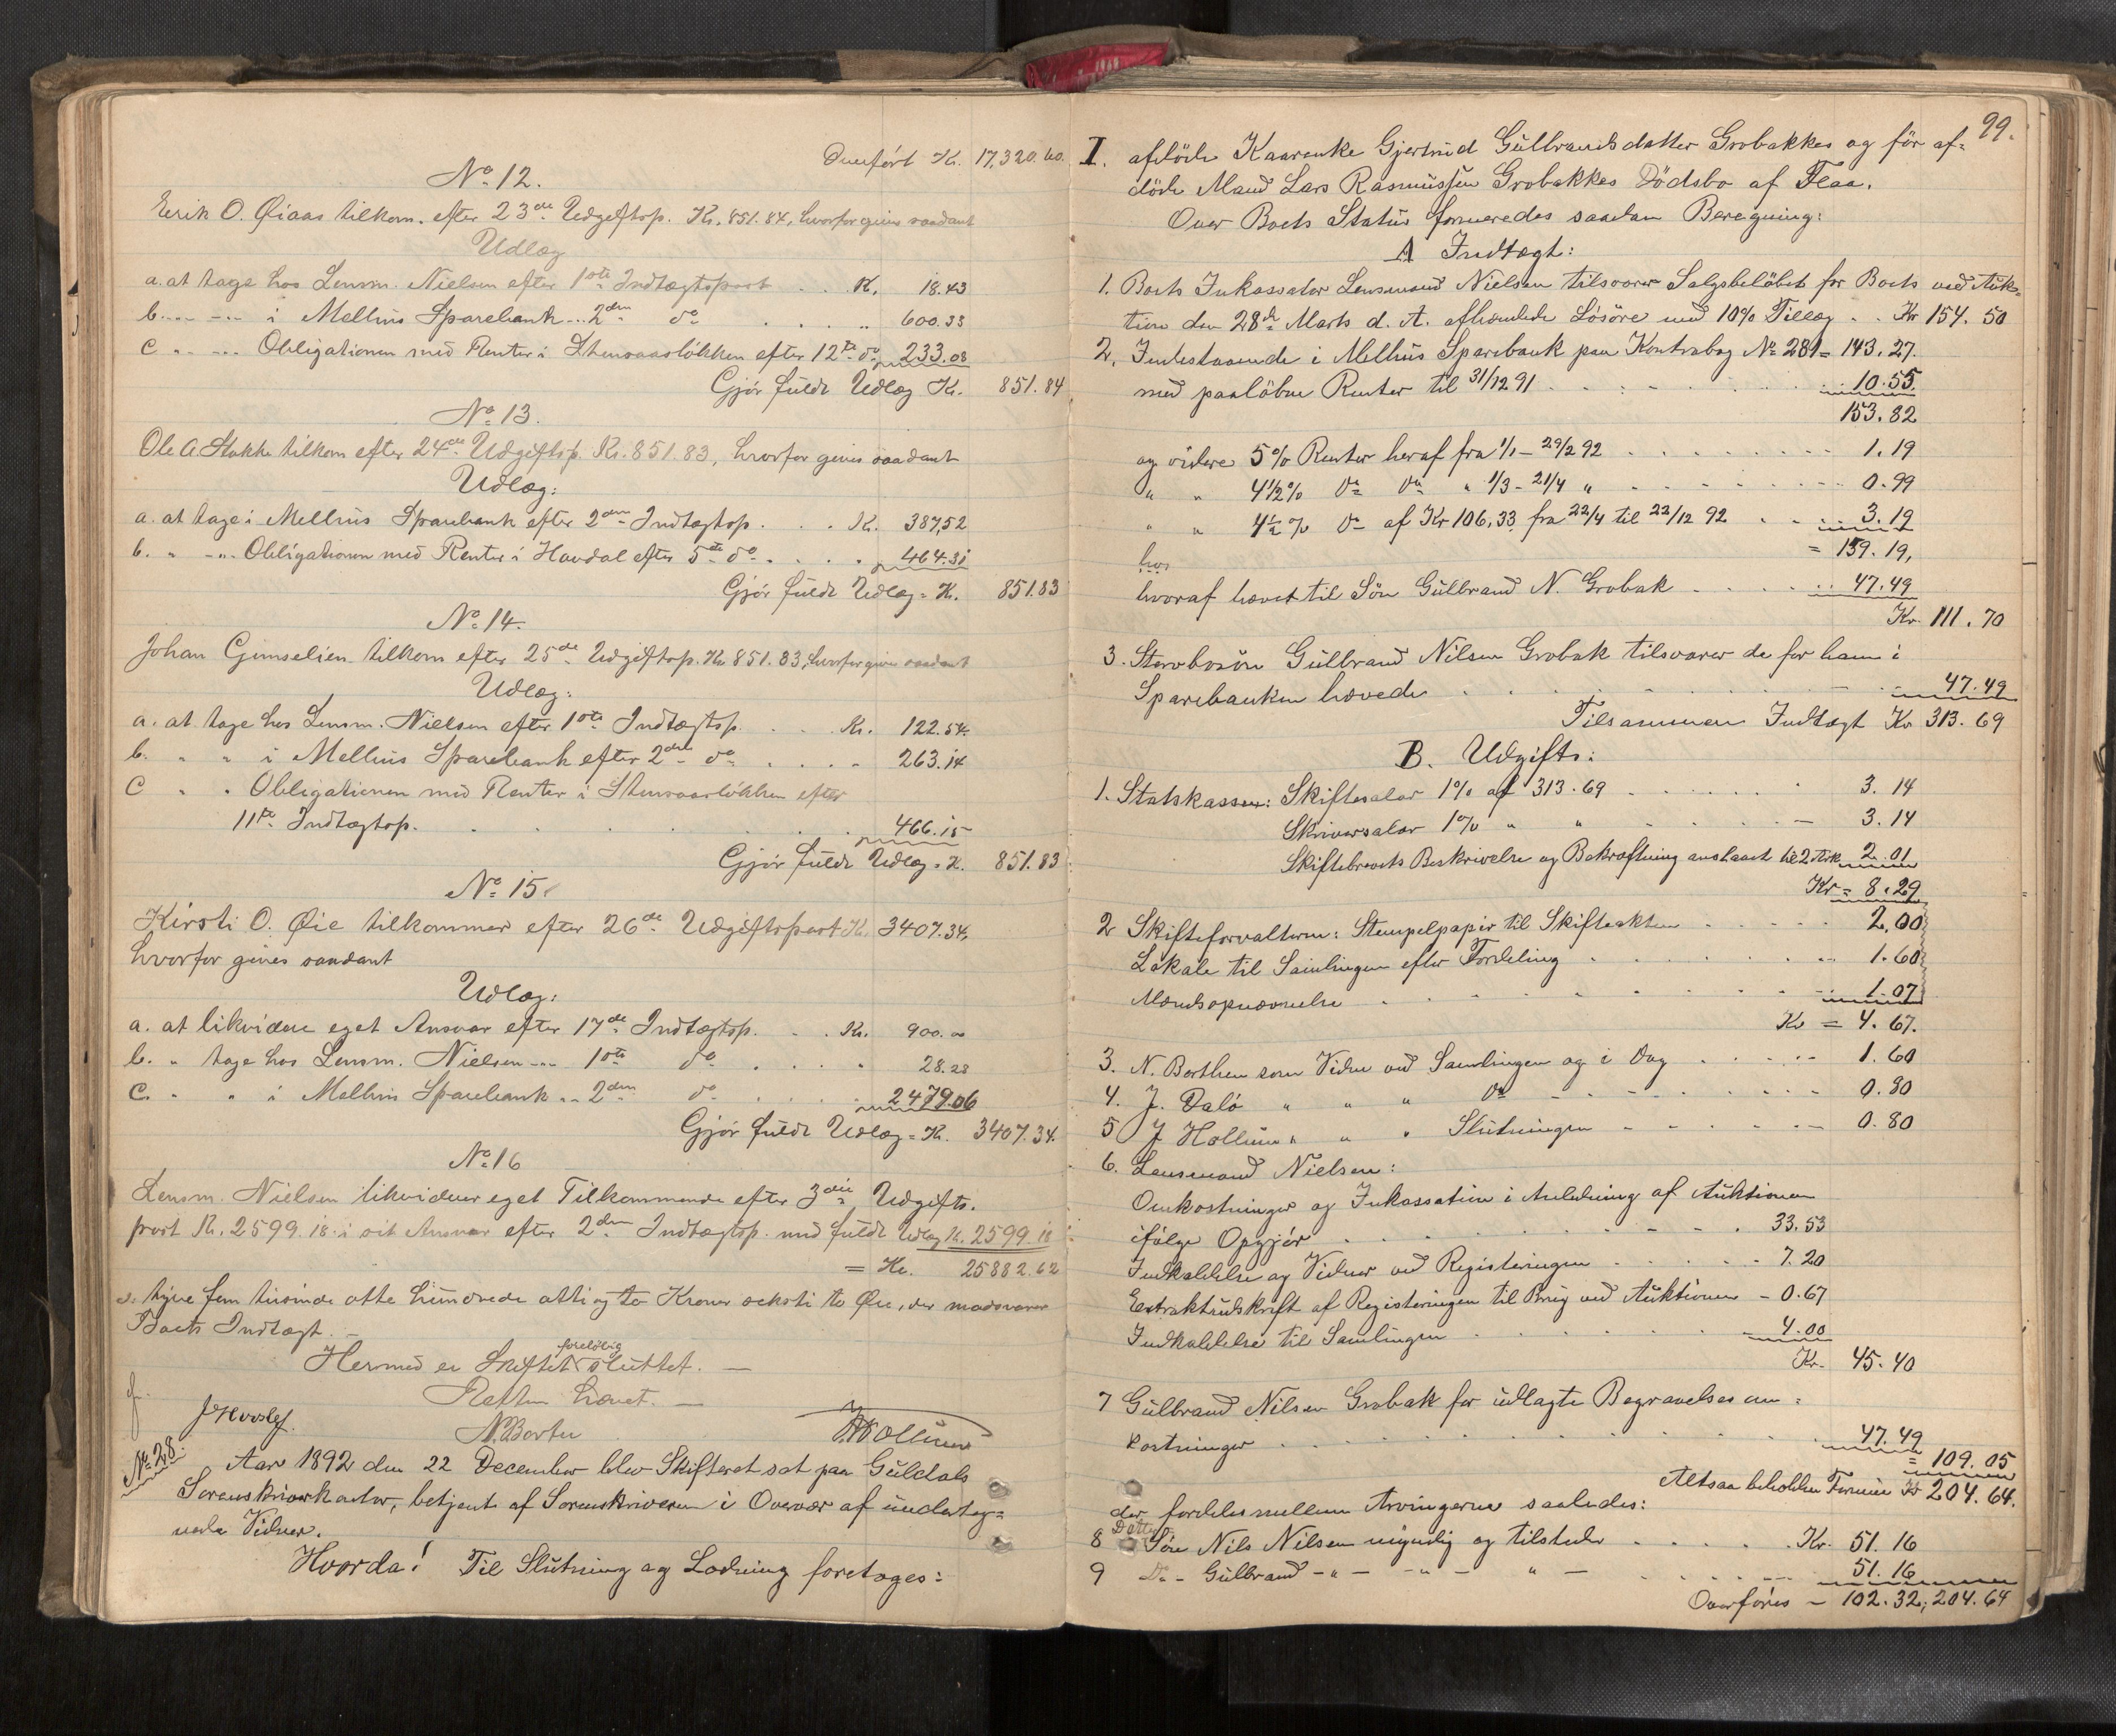 Overført Kr. 17,320.60.
No 12.
Erik O. Øiaas tilkom. efter 23de Udgiftsp. Kr. 851.84, hvorfor gives saadant
Udlæg
a. at tage hos Lensm. Nielsen efter 1ste Indtægtspost . . K. 18.43
b. - - - - i Melhus Sparebank - - 2den do . . . . 600.33
c - - - - Obligationen med Renter i Stensaasløkken efter 12te do 233.08
Gjør fuldt Udlæg Kr. 851.84
No 13.
Ole A. Stokke tilkom efter 24de Udgiftsp. Kr. 851.83, hvorfor gives saadant
Udlæg:
a. at tage i Melhus Sparebank efter 2den Indtægtsp. . . . K. 387,52
b. " - " - Obligationen med Renter i Havdal efter 5te do . . . . 464.31
Gjør fuldt Udlæg = K. 851.83
No 14.
Johan Gimselien tilkom efter 25de Udgiftsp. Kr 851.83, hvorfor gives saadant
Udlæg:
a. at tage hos Lensm. Nielsen efter 1ste Indtægtsp. . . . Kr. 122.54.
b. " " i Melhus Sparebank efter 2den do . . . . 263.14
c " " Obligationen med Renter i Stensaasløkken efter
11te Indtægtsp. . . . . . . . 466.15
Gjør fuldt Udlæg = K. 851.83
No 15.
Kirsti O. Øie tilkommer efter 26de Udgiftspost K. 3407.34,
hvorfor gives saadant
Udlæg:
a. at likvidere eget Ansvar efter 17de Indtægtsp. . . Kr. 900.00
b. " tage hos Lensm. Nielsen - - - 1ste do . . . . 28.28
c. " " i Melhus Sparebank - - 2den do . . . . 2479.06
Gjør fuldt Udlæg = K. 3407.34.
No 16
Lensm. Nielsen likviderer eget Tilkommende efter 3die Udgifts-
post Kr. 2599.18 i sit Ansvar efter 2den Indtægtsp. med fuldt Udlæg K. 2599.18
= Kr. 25882.62
s: tyve fem tusinde otte hundrede otti og to Kroner seksti to Øre, der modsvarer
Boets Indtægt. -
Hermed er Skiftet foreløbig sluttet. -
Retten hævet. -
N. Borten
J. Hollum
No 28.
Aar 1892 den 22 December blev Skifteret sat paa Guldals
Sorenskriverkontor, betjent af Sorenskriveren i Overvær af underteg=
nede Vidner.
Hvorda! Til Slutning og Lodning foretages:
99.
I. afdøde Kaarenke Gjertrud Gulbrandsdatter Grobakkes og før af=
døde Mand Lars Rasmussen Grobakkes Dödsbo af Flaa.
Over Boets Status formeredes saadan Beregning:
A Indtægt:
1. Boets Inkassator Lensmand Nielsen tilsvarer Salgsbeløbet for Boets ved Auk=
tion den 28de Marts d. A. afhændede Løsøre med 10% Tillæg . . Kr 154.50
2. Indestaaende i Melhus Sparebank paa Kontrabog No 281 = 143.27.
med paaløbne Renter til 31/12 91 . . . . . . 10.55.
153.82
og videre 5% Renter heraf fra 1/1 - 29/2 92 . . . . . 1.19
" " 4½% do do " 1/3 - 21/4 " . . . . . 0.99
" " 4½% do af Kr 106,33 fra 22/4 til 22/12 92 . . . 3.19
= 159.19,
hvor
hvoraf hævet til Søn Gulbrand N. Grobak . . . . 47.49
Kr. 111.70
3. Stervbosøn Gulbrand Nilsen Grobak tilsvarer de for ham i
Sparebanken hævede . . . . . . . 47.49
Tilsammen Indtægt Kr 313.69
B. Udgifts:
1. Statskassen: Skiftesalær 1% af 313.69 . . . . . 3.14
Skriversalær 1% " " . . . . 3.14
Skiftebrevets Beskrivelse og Bekræftning anslaaet til 2 Ark 2.01
Kr = 8.29
2 Skifteforvalteren: Stempelpapir til Skifteakten . . . . . 2,00
Lokale til Samlingen efter Fordeling . . . . . . 1.60
Mændsopnævnelse . . . . . . . 1.07
Kr = 4.67.
3. N. Borthen som Vidne ved Samlingen og i Dag . . . . . 1.60
4. J. Dalö " " " do . . . . . 0.80
5 J Hollum " " " Slutningen . . . . . 0.80
6. Lensmand Nielsen:
Omkostninger og Inkassation i Anledning af Auktionen
ifølge Opgjør . . . . . . . 33.53
Indkaldelse og Vidner ved Registeringen . . . . . 7.20
Extraktudskrift af Registeringen til Brug ved Auktionen - 0.67
Indkaldelse til Samlingen . . . . . . 4.00
Kr. 45.40
7 Gulbrand Nilsen Grobak for udlagte Begravelsesom=
kostninger . . . . . . . 47.49
= 109.05
Altsaa beholden Formue Kr 204.64.
der fordeles mellem Arvingerne saaledes:
Datter
8 Søn Nils Nilsen myndig og tilstede . . . . . Kr. 51.16
9 Do - Gulbrand - " - - " - " - . . . . 51.16
Overføres - 102.32, 204.64